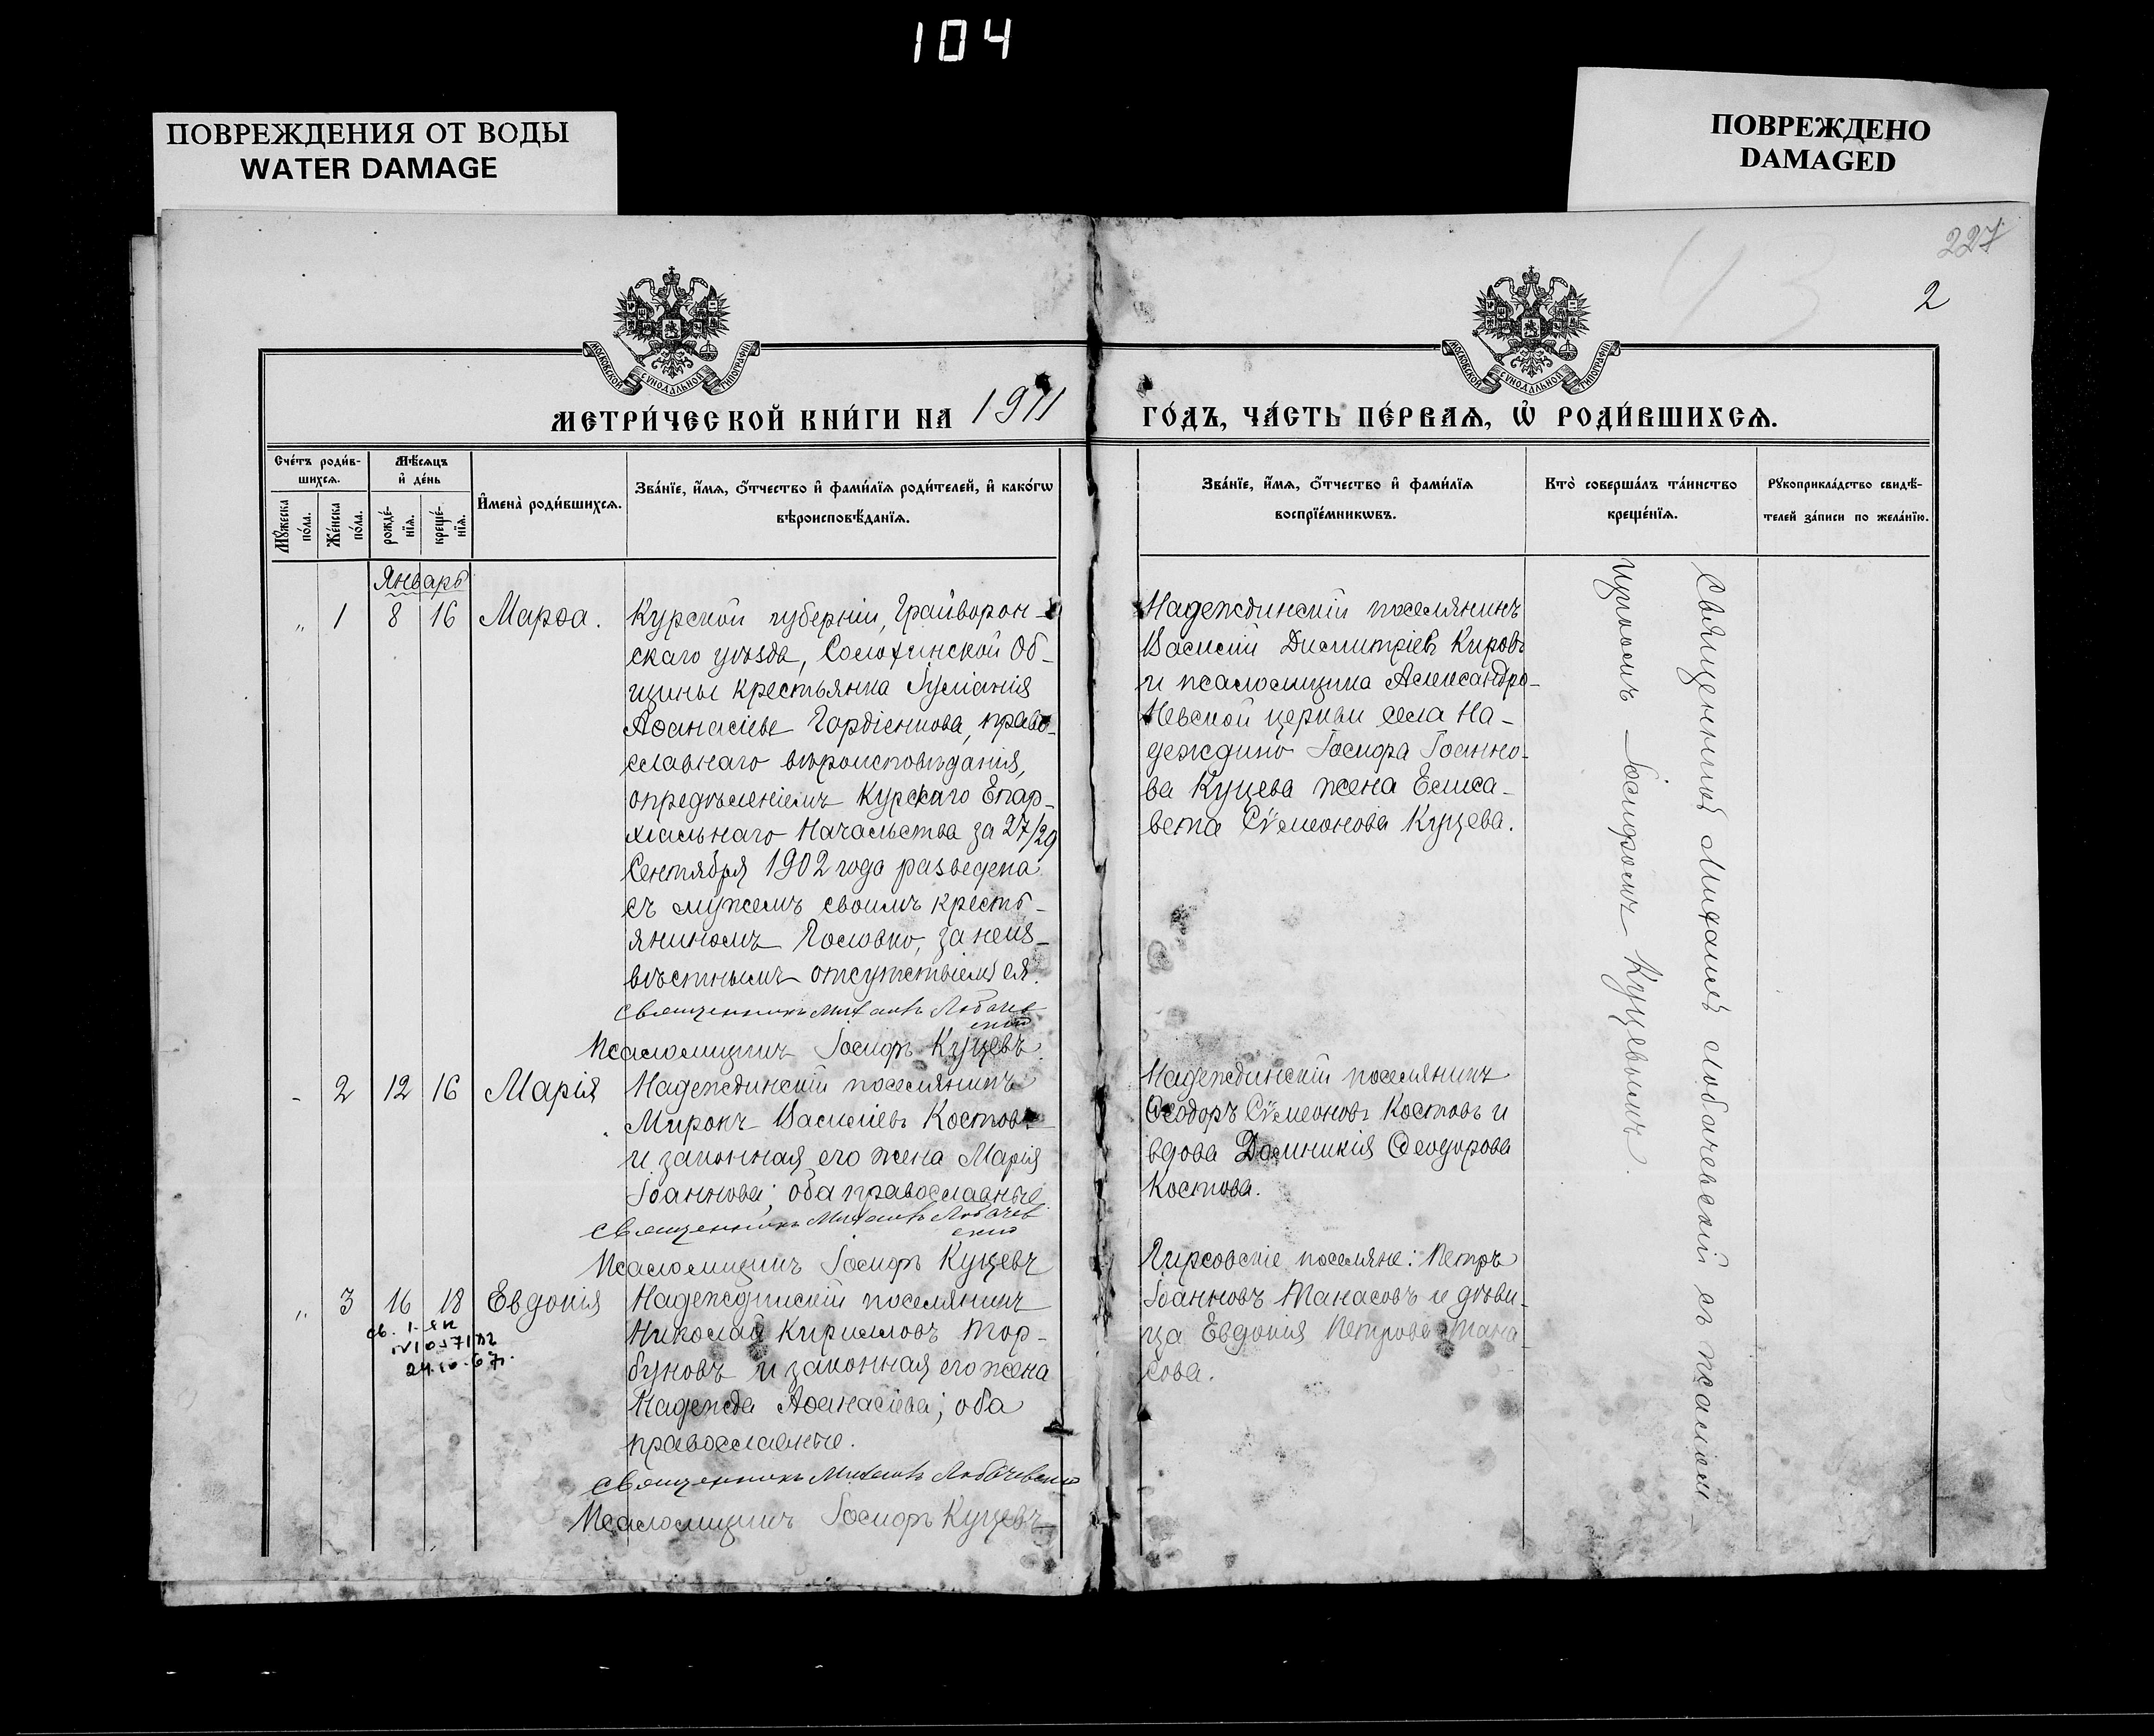 104
ПОВРЕЖДЕНИЯ ОТ ВОДЫ
WATER DAMAGE
ПОВРЕЖДЕНО
DAMAGED
227
2
МОСКОВСКОЙ СѴНОДАЛЬНОЙ ТИПОГРАФІИ
МОСКОВСКОЙ СѴНОДАЛЬНОЙ ТИПОГРАФІИ
МЕТРИ́ЧЕСКОЙ КНИ́ГИ НА 1911
ГО́ДЪ, ЧА́СТЬ ПЕ́РВАѦ, Ѡ҆ РОДИ́ВШИХСѦ.
Сче́тъ роди́в-
шихсѧ.
Мꙋ́жеска
по́ла.
Же́нска
по́ла.
Мѣ́сѧцъ
и҆ де́нь
рожде́-
нїѧ.
креще́-
нїѧ.
И҆мена̀ роди́вшихсѧ.
Зва́нїе, и҆́мѧ, ѻ҆́тчество и҆ фами́лїѧ роди́телей, и҆ како́гѡ
вѣроисповѣ́данїѧ.
Зва́нїе, и҆́мѧ, ѻ҆́тчество и҆ фами́лїѧ
воспрїе́мникѡвъ.
Кто̀ соверша́лъ та́инство
креще́нїѧ.
Рꙋкоприкла́дство свидѣ́-
телей за́писи по жела́нїю.
Январь
„ 1 8 16 Марѳа.
Курской губерніи, Грайворон-
скаго уѣзда, Солохинской Об-
щины крестьянка Іуліанія
Аѳанасіева Гордіенкова, право-
славнаго вѣроисповѣданія,
опредѣленіемъ Курскаго Епар-
хіальнаго Начальства за 27/29
Сентября 1902 года разведена
съ мужемъ своимъ кресть-
яниномъ Головко, за неиз-
вѣстнымъ отсутствіемъ ея.
Священникъ Михаилъ Лобачев
скій
Псаломщикъ Іосифъ Куцевъ.
Надеждинскій поселянинъ
Василій Димитріевъ Кировъ
и псаломщика Александро-
Невской церкви села На-
деждино Іосифа Іоанно-
ва Куцева жена Елиса-
вета Сѵмеонова Куцева.
- 2 12 16 Марія
Надеждинскій поселянинъ
Миронъ Василіевъ Костовъ
и законная его жена Марія
Іоаннова; оба православные
Священникъ Михаилъ Лобачев
скій
Псаломщикъ Іосифъ Куцевъ
Надеждинскій поселянинъ
Ѳеодоръ Сѵмеоновъ Костовъ и
вдова Домникія Ѳеодорова
Костова.
„ 3 16 18 Евдокія
24.10.67г.
Надеждинскій поселянинъ
Николай Кирилловъ Тор-
буновъ и законная его жена
Надежда Аѳанасіева; оба
православные.
Священникъ Михаилъ Лобачевскій
Псаломщикъ Іосифъ Куцевъ
Пирсовскіе поселяне: Петръ
Іоанновъ Танасовъ и дѣви-
ца Евдокія Петрова Тана
сова.
Священникъ Михаилъ Лобачевскій съ псалом-
щикомъ Іосифомъ Куцевымъ.